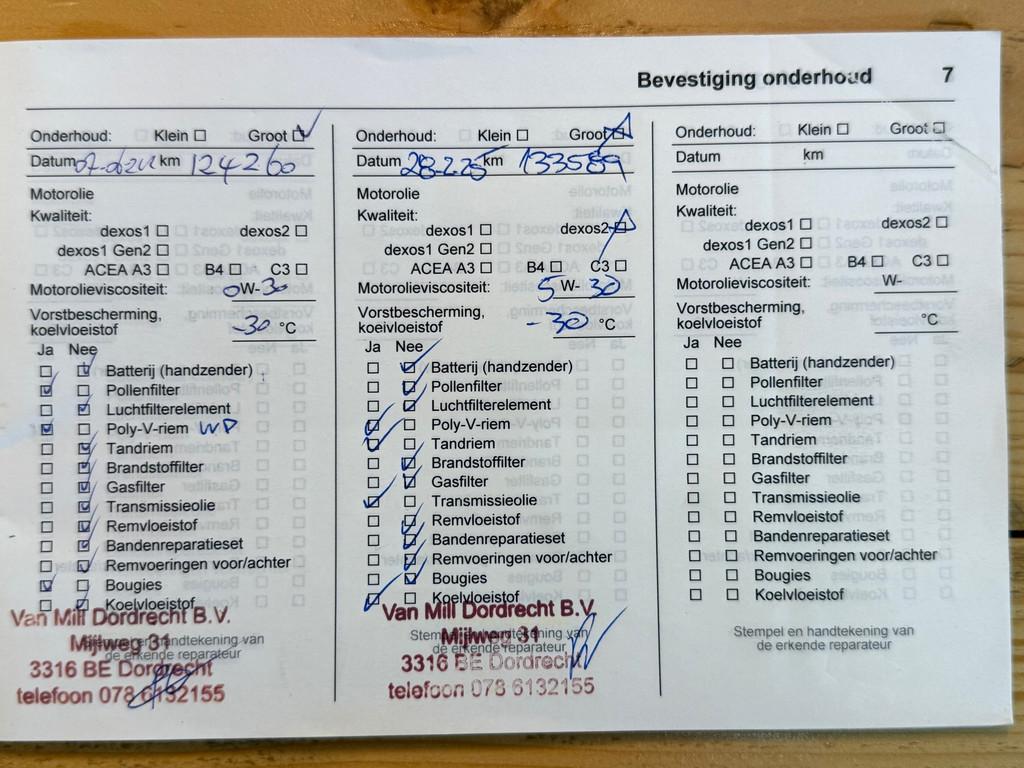 Bevestiging onderhoud 7
Onderhoud: Klein ☐ Groot ☑
Datum km 124260
Motorolie
Kwaliteit:
dexos1 ☐ dexos2 ☐
dexos1 Gen2 ☐
ACEA A3 ☐ B4 ☐ C3 ☐
Motorolieviscositeit: 0W-30
Vorstbescherming,
koelvloeistof -30 °C
Ja Nee
Batterij (handzender)
Pollenfilter
Luchtfilterelement
Poly-V-riem WP
Tandriem
Brandstoffilter
Gasfilter
Transmissieolie
Remvloeistof
Bandenreparatieset
Remvoeringen voor/achter
Bougies
Koelvloeistof
Stempel en handtekening van
de erkende reparateur
Van Mill Dordrecht B.V.
Mijlweg 31
3316 BE Dordrecht
telefoon 078 6132155
Onderhoud: Klein ☐ Groot ☑
Datum 28-2-25 km 133589
Motorolie
Kwaliteit:
dexos1 ☐ dexos2 ☑
dexos1 Gen2 ☐
ACEA A3 ☐ B4 ☐ C3 ☐
Motorolieviscositeit: 5W-30
Vorstbescherming,
koelvloeistof -30 °C
Ja Nee
Batterij (handzender)
Pollenfilter
Luchtfilterelement
Poly-V-riem
Tandriem
Brandstoffilter
Gasfilter
Transmissieolie
Remvloeistof
Bandenreparatieset
Remvoeringen voor/achter
Bougies
Koelvloeistof
Stempel en handtekening van
de erkende reparateur
Van Mill Dordrecht B.V.
Mijlweg 31
3316 BE Dordrecht
telefoon 078 6132155
Onderhoud: Klein ☐ Groot ☐
Datum km
Motorolie
Kwaliteit:
dexos1 ☐ dexos2 ☐
dexos1 Gen2 ☐
ACEA A3 ☐ B4 ☐ C3 ☐
Motorolieviscositeit: W-
Vorstbescherming,
koelvloeistof °C
Ja Nee
☐ ☐ Batterij (handzender)
☐ ☐ Pollenfilter
☐ ☐ Luchtfilterelement
☐ ☐ Poly-V-riem
☐ ☐ Tandriem
☐ ☐ Brandstoffilter
☐ ☐ Gasfilter
☐ ☐ Transmissieolie
☐ ☐ Remvloeistof
☐ ☐ Bandenreparatieset
☐ ☐ Remvoeringen voor/achter
☐ ☐ Bougies
☐ ☐ Koelvloeistof
Stempel en handtekening van
de erkende reparateur